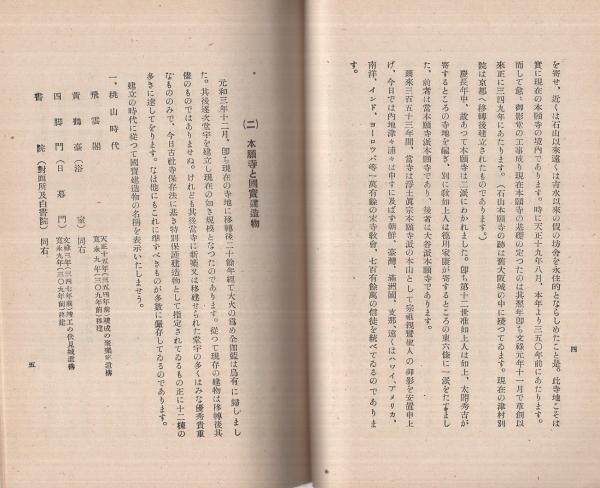 を寄せ、近くは石山以來遠くは吉水以來の假の坊舎を永住的とならしめたこと是。此寺地こそは
實に現在の本願寺の境内であります。時に天正十九年八月、本年より三五〇年前にあたります。
而して愈々御影堂の工事成り現在本願寺の基礎の定つたのは其翌年卽ち文祿元年十一月で草創以
來正に三四九年にあたります。(石山本願寺の跡は舊大阪城の中に殘つてゐます。現在の津村別
院は京都へ移轉後建立されたものであります。)
慶長年中、故あつて本願寺は二派にわかれました。卽ち第十二世准如上人は如上、太閤秀吉が
寄するところの寺地を繼ぎ、別に敎如上人は德川家康が寄するところの東六條に一派をたてまし
た、前者は當本願寺派本願寺であり、後者は大谷派本願寺であります。
爾來三百五十三年間、當寺は淨土眞宗本願寺派の本山として宗祖親鸞聖人の御影を安置申上
げ、今日では內地津々浦々は申すに及ばず朝鮮、臺灣、滿洲國、支那、遠くはハワイ、アメリカ、
南洋、インド、ヨーロツパ等一萬有餘の末寺敎會、七百有餘萬の信徒を統べてゐるのでありま
す。
四
(二) 本願寺と國寳建造物
元和三年十二月、卽ち現在の寺地に移轉後二十餘年經て大火の爲め全伽藍は烏有に歸しまし
た。其後逐次堂宇を建立し現在の如き規模となつたのであります。從つて現存の建物は移轉後其
儘のものではありませぬ。けれども其後當寺に新築又は移建せられた堂宇の多くはみな優秀貴重
なもののみで、今日古社寺保存法に基き特別保護建造物として指定されてゐるもの正に十二棟の
多きに達してをります。なほ他にもこれに準ずべきものが多數に儼存してゐるのであります。
建立の時代に從つて國寳建造物の名稱を表示いたしませう。
一、桃山時代
飛雲閣 天正十五年(三五四年前)建成の聚樂第遺構 寬永九年(三〇九年前)移建
黃鶴臺(浴室) 同右
四脚門(日暮門) 文祿三年(三四七年前)竣工の伏見城遺構 寬永九年(三〇九年前)移建
書院(對面所及白書院) 同右
五